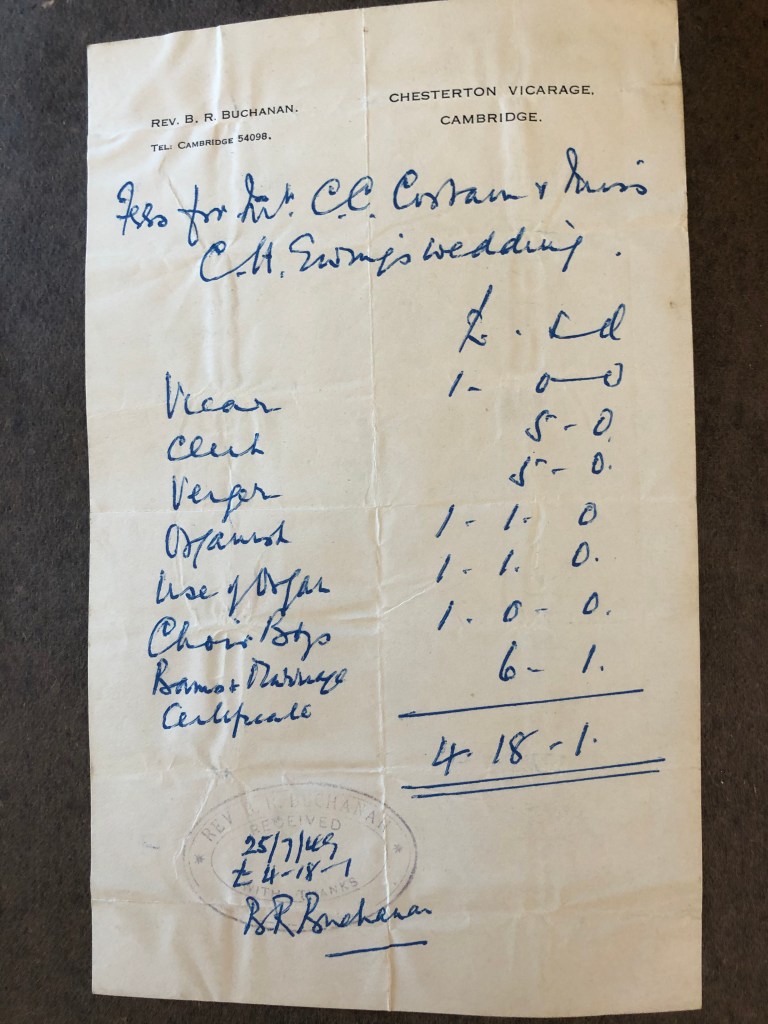 REV. B. R. BUCHANAN.
TEL: CAMBRIDGE 54098.
CHESTERTON VICARAGE,
CAMBRIDGE.
Fees for Mr. C.C. Costain & Miss
C.H. Ewing's wedding.
£ . s d
Vicar 1 - 0 - 0
Clerk 5 - 0
Verger 5 - 0.
Organist 1 - 1 - 0
Use of Organ 1 - 1. 0.
Choir Boys 1. 0 - 0.
Banns & Marriage
Certificate 6 - 1.
4. 18 - 1.
REV B. R. BUCHANAN
RECEIVED
25/7/49
£ 4-18-1
WITH THANKS
B R Buchanan